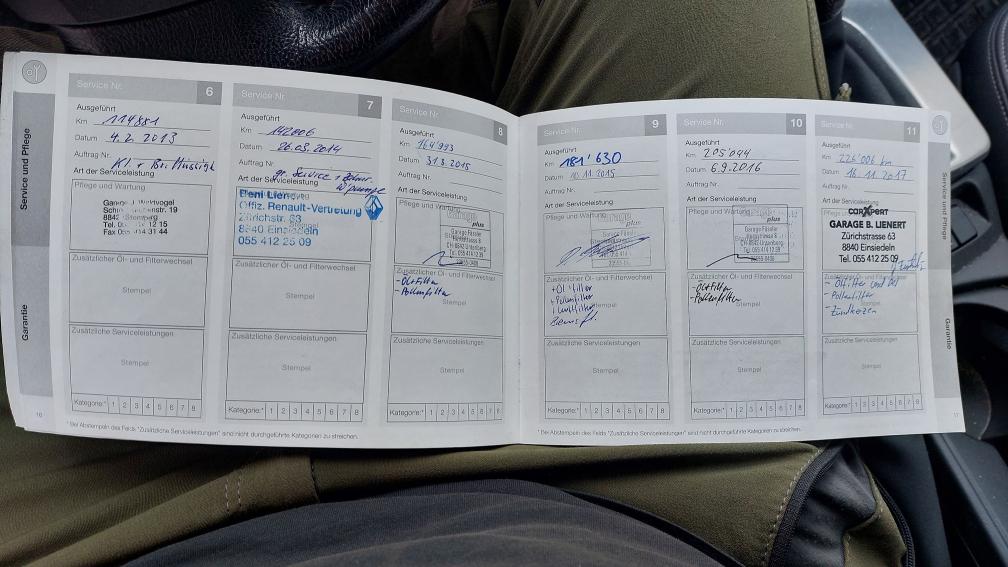 Service und Pflege
Garantie
16
Service Nr. 6
Ausgeführt
Km 114881
Datum 4.2.2013
Auftrag Nr.
Kl + Br.
Art der Serviceleistung
Pflege und Wartung
19
8842
Tel. 12 15
Fax 055 414 31 44
Zusätzlicher Öl- und Filterwechsel
Stempel
Zusätzliche Serviceleistungen
Stempel
Kategorie:* 1 2 3 4 5 6 7 8
Service Nr. 7
Ausgeführt
Km 142006
Datum 26.03.2014
Auftrag Nr.
gr. Service +
Art der Serviceleistung
Beni Lienert
Offiz. Renault-Vertretung
Zürichstr. 63
8840 Einsiedeln
055 412 25 09
Zusätzlicher Öl- und Filterwechsel
Stempel
Zusätzliche Serviceleistungen
Stempel
Kategorie:* 1 2 3 4 5 6 7 8
Service Nr. 8
Ausgeführt
Km 164'993
Datum 31.3.2015
Auftrag Nr.
Art der Serviceleistung
Pflege und Wartung
plus
Garage Fässler
CH-8842 Unteriberg
Zusätzlicher Öl- und Filterwechsel
- Ölfilter
- Pollenfilter
Stempel
Zusätzliche Serviceleistungen
Stempel
Kategorie:* 1 2 3 4 5 6 7 8
* Bei Abstempeln des Felds "Zusätzliche Serviceleistungen" sind nicht durchgeführte Kategorien zu streichen.
Service Nr. 9
Ausgeführt
Km 181'630
Datum 10.11.2015
Auftrag Nr.
Art der Serviceleistung
Pflege und Wartung
plus
Garage Fässler
Zusätzlicher Öl- und Filterwechsel
+ Ölfilter
+ Pollenfilter
+ Luftfilter
Bremsfl.
Zusätzliche Serviceleistungen
Stempel
Kategorie:* 1 2 3 4 5 6 7 8
Service Nr. 10
Ausgeführt
Km 205'044
Datum 6.9.2016
Auftrag Nr.
Art der Serviceleistung
Pflege und Wartung
plus
Garage Fässler
CH-8842 Unteriberg
Zusätzlicher Öl- und Filterwechsel
- Ölfilter
- Pollenfilter
Stempel
Zusätzliche Serviceleistungen
Stempel
Kategorie:* 1 2 3 4 5 6 7 8
Service Nr. 11
Ausgeführt
Km 226'006 km
Datum 16.11.2017
Auftrag Nr.
Art der Serviceleistung
carXpert
GARAGE B. LIENERT
Zürichstrasse 63
8840 Einsiedeln
Tel. 055 412 25 09
Zusätzlicher Öl- und Filterwechsel
- Ölfilter und Öl
- Pollenfilter
- Zündkerzen
Zusätzliche Serviceleistungen
Stempel
Kategorie:* 1 2 3 4 5 6 7 8
* Bei Abstempeln des Felds "Zusätzliche Serviceleistungen" sind nicht durchgeführte Kategorien zu streichen.
Service und Pflege
Garantie
17